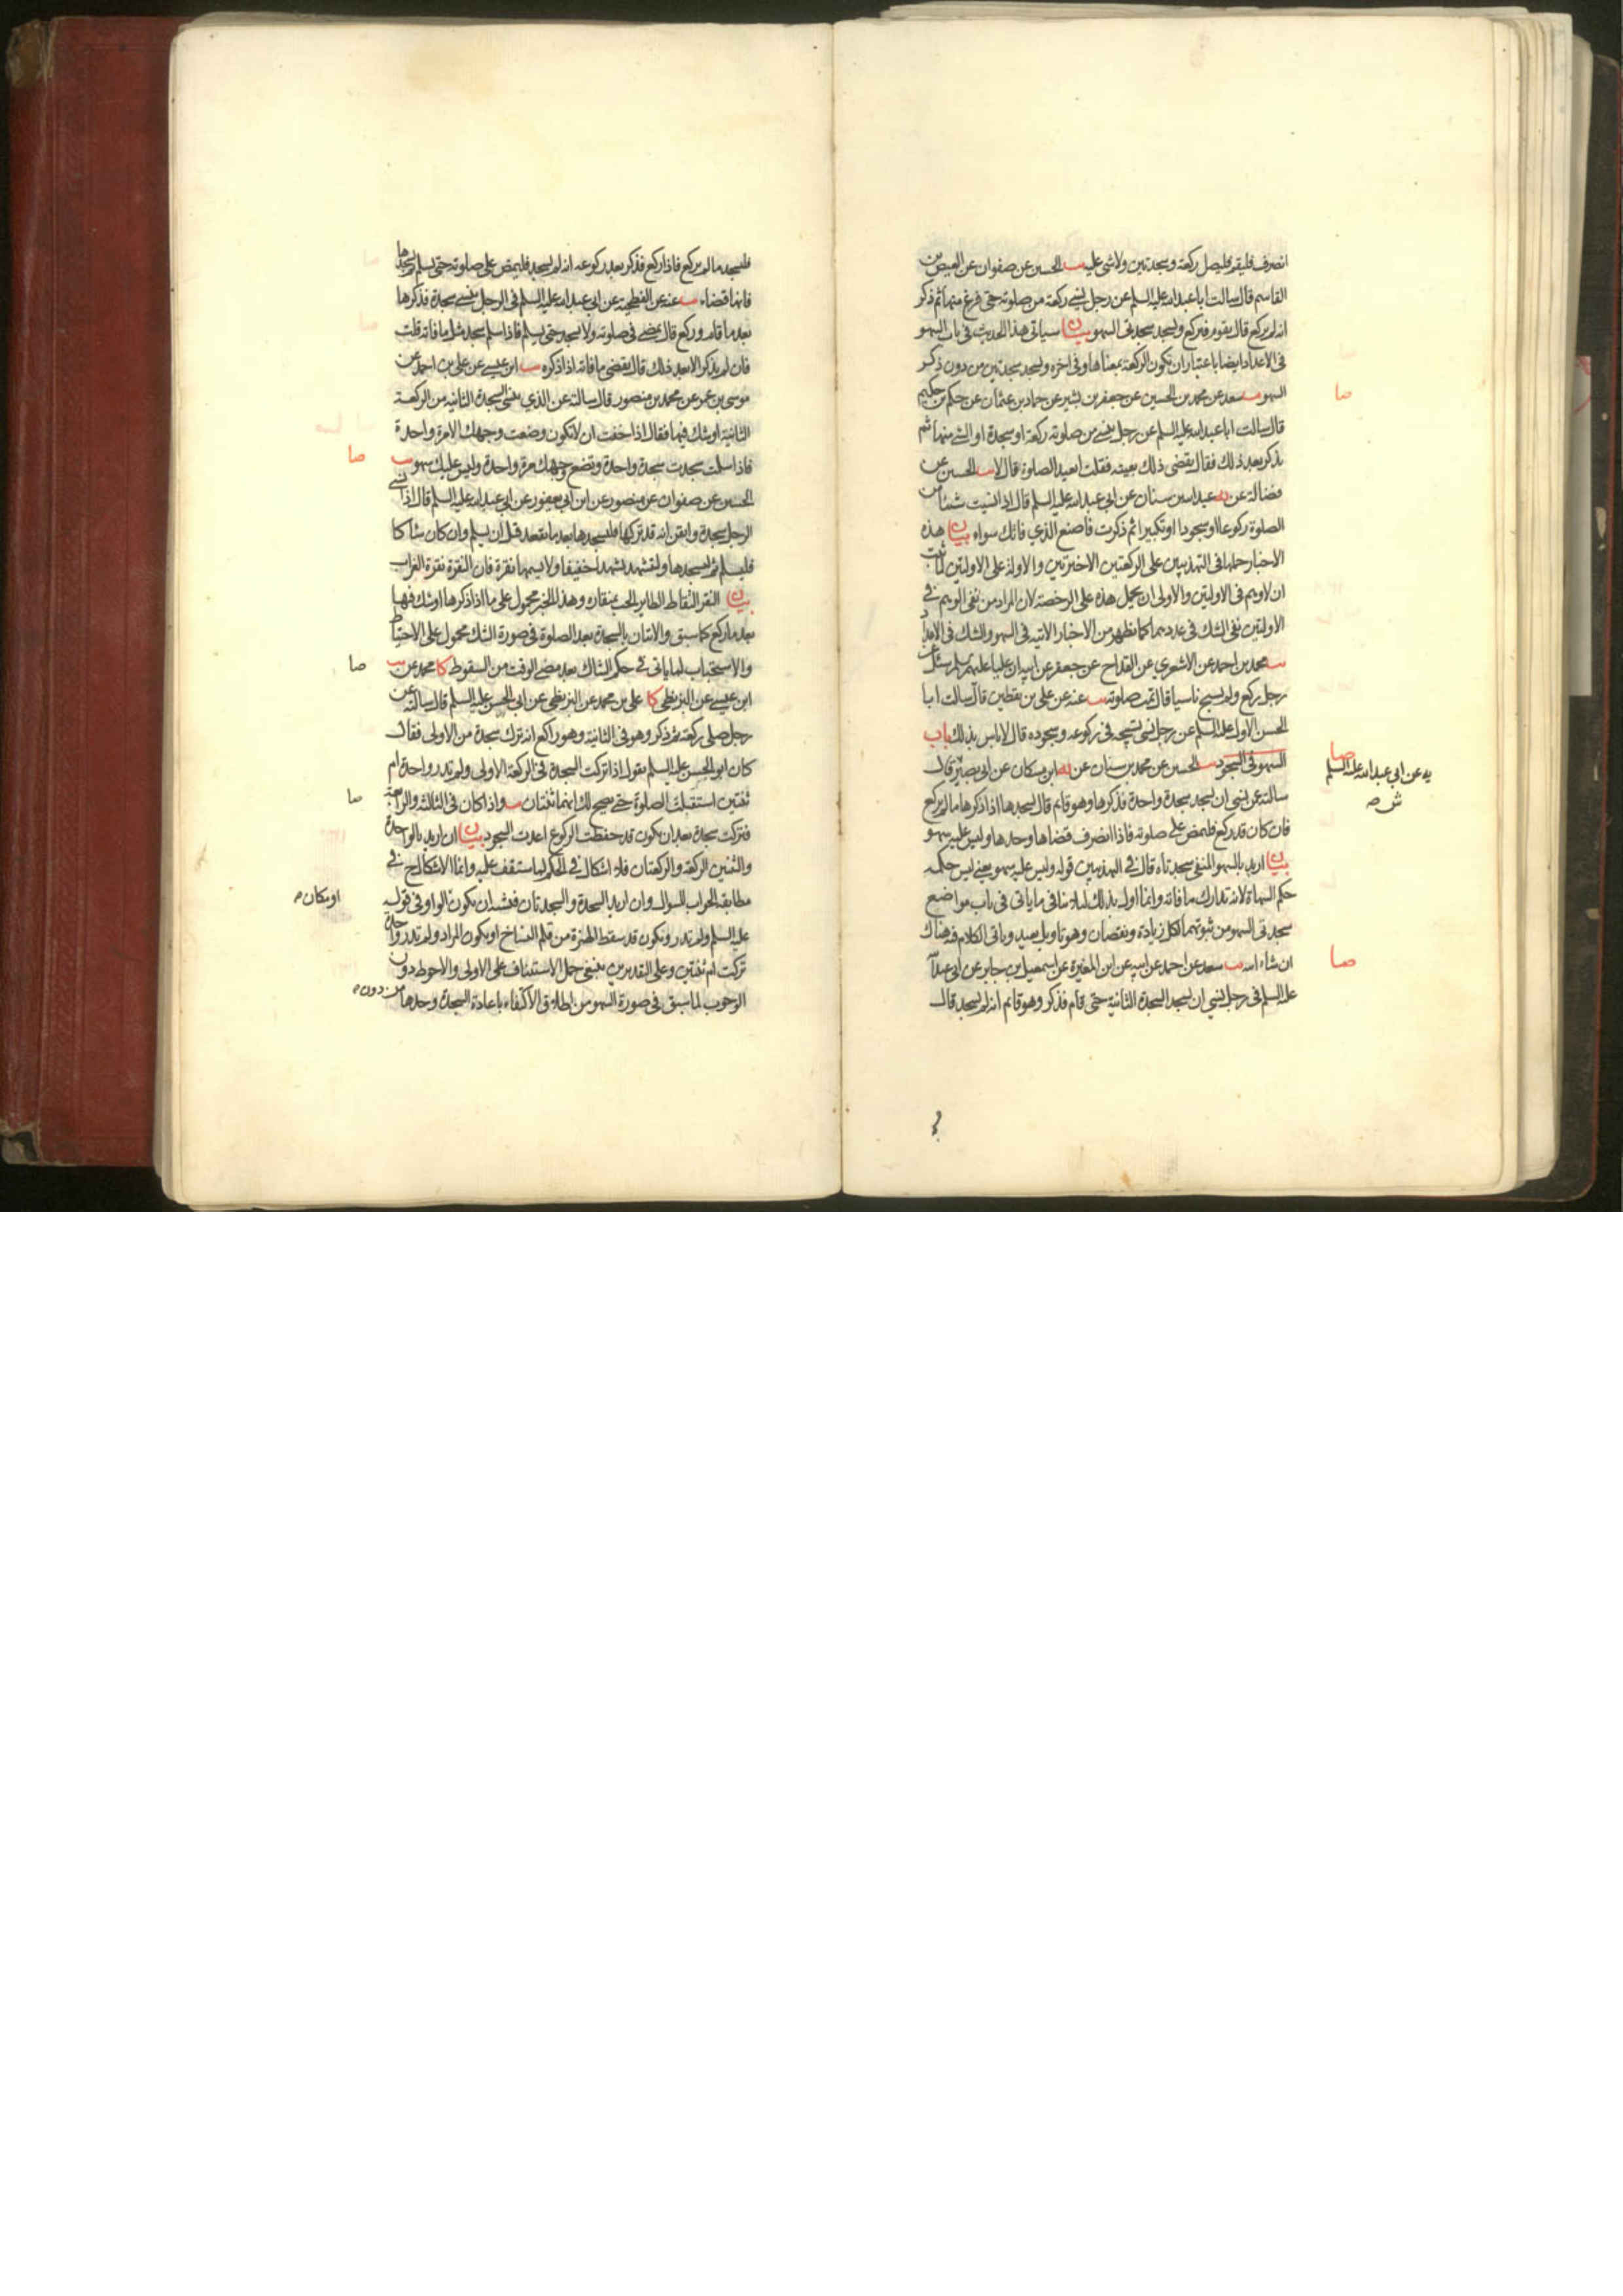 انصرف فليقم فليصل ركعة ويسجد سجدتين ولا شئ عليه يب الحسين عن صفوان عن العيص بن
القاسم قال سالت اباعبدالله عليه السلم عن رجل نسي ركعة من صلوته حتى فرغ منها ثم ذكر
انه لم يركع قال يقوم فيركع ويسجد سجدتى السهو بيان سياتى هذا الحديث فى باب السهو
فى الاعداد ايضا باعتبار ان تكون الركعة بمعناها وفى اخره ويسجد سجدتين من دون ذكر
السهو يب سعد عن محمد بن الحسين عن جعفر بن بشير عن حماد بن عثمان عن حكم بن حكيم
قال سالت اباعبدالله عليه السلم عن رجل ينسى من صلوته ركعة او سجدة او الشئ منها ثم
يذكر بعد ذلك فقال يقضى ذلك بعينه فقلت ايعيد الصلوة قال لا يب الحسين عن
فضالة عن عبدالله بن سنان عن ابى عبدالله عليه السلم قال اذا نسيت شيئا من
الصلوة ركوعا او سجودا او تكبيرا ثم ذكرت فاصنع الذي فاتك سواء بيان هذه
الاخبار حملها فى التهذيبين على الركعتين الاخيرتين والاولة على الاوليتين لما ثبت
ان لا وهم فى الاوليتين والاولى ان يحمل هذه على الرخصة لان المراد من نفى الوهم فى
الاوليتين نفى الشك فى عددهما كما يظهر من الاخبار الاتية فى السهو والشك فى الاعداد
يب محمد بن احمد عن الاشعري عن القداح عن جعفر عن ابيه ان عليا عليهم السلم سئل عن
رجل ركع ولم يسبح ناسيا قال تمت صلوته يب عنه عن على بن يقطين قال سالت ابا
الحسن الاول عليه السلم عن رجل نسى تسبيحه فى ركوعه وسجوده قال لا باس بذلك باب
السهو فى السجود يب الحسين عن محمد بن سنان عن ابن مسكان عن ابى بصير قال
سالته عن نسى ان يسجد سجدة واحدة فذكرها وهو قائم قال يسجدها اذا ذكرها ما لم يركع
فان كان قد ركع فليمض على صلوته فاذا انصرف قضاها وحدها وليس عليه سهو
بيان اريد بالسهو المنفى سجدتاه قال فى التهذيبين قوله وليس عليه سهو يعنى ليس حكمه
حكم السهاة لانه تدارك ما فاته وانما اوله بذلك لئلا ينافى ما ياتى فى باب مواضع
سجدتى السهو من ثبوتهما لكل زيادة ونقصان وهو تاويل بعيد وياتى الكلام فيه هناك
ان شاء الله يب سعد عن احمد عن ابيه عن ابن المغيرة عن اسمعيل بن جابر عن ابى عبدالله
عليه السلم فى رجل نسي ان يسجد السجدة الثانية حتى قام فذكر وهو قائم انه لم يسجد قال
صا
صا
يه عن ابى عبدالله عليه السلم
ش ص
صا
فليسجد ما لم يركع فاذا ركع فذكر بعد ركوعه انه لم يسجد فليمض على صلوته حتى يسلم ثم يسجدها
فانها قضاء يب عنه عن الفطحية عن ابى عبدالله عليه السلم فى الرجل ينسى سجدة فذكرها
بعد ما قام وركع قال يمضى فى صلوته ولا يسجد حتى يسلم فاذا سلم سجد مثل ما فاته قلت
فان لم يذكر الا بعد ذلك قال يقضى ما فاته اذا ذكره يب ابن عيسى عن على بن احمد عن
موسى بن عمر عن محمد بن منصور قال سالته عن الذي ينسى السجدة الثانية من الركعة
الثانية او شك فيها فقال اذا خفت ان لا تكون وضعت وجهك الا مرة واحدة
فاذا سلمت سجدت سجدة واحدة وتضع وجهك مرة واحدة وليس عليك سهو يب
الحسين عن صفوان عن منصور عن ابن ابى يعفور عن ابى عبدالله عليه السلم قال اذا نسى
الرجل سجدة وايقن انه قد تركها فليسجدها بعد ما يقعد قبل ان يسلم وان كان شاكا
فليسلم ثم ليسجدها وليتشهد تشهدا خفيفا ولا يسمها نقرة فان النقرة نقرة الغراب
بيان النقر التقاط الطاير الحب بمنقاره وهذا الخبر محمول على ما اذا ذكرها او شك فيها
بعد ما ركع كما سبق والاتيان بالسجدة بعد الصلوة فى صورة الشك محمول على الاحتياط
والاستحباب لما ياتى فى حكم الشاك بعد مضى الوقت من السقوط كا محمد عن يب
ابن عيسى عن البزنطى كا على بن محمد عن البزنطى عن ابى الحسن عليه السلم قال سالته عن
رجل صلى ركعة ثم ذكر وهو فى الثانية وهو راكع انه ترك سجدة من الاولى فقال
كان ابو الحسن عليه السلم يقول اذا تركت السجدة فى الركعة الاولى ولم تدر واحدة ام
ثنتين استقبلت الصلوة حتى يصح لك انهما ثنتان يب واذا كان فى الثالثة والرابعة
فتركت سجدة بعد ان يكون قد حفظت الركوع اعدت السجود بيان ان اريد بالواحدة
والثنتين الركعة والركعتان فلا اشكال فى الحكم لما ستقف عليه وانما الاشكال ح فى
مطابقة الجواب للسوال وان اريد السجدة والسجدتان فيشبه ان يكون الواو فى قوله
عليه السلم ولم تدر ويكون قد سقط الهمزة من قلم النساخ او يكون المراد ولم تدر واحدة
تركت ام ثنتين وعلى التقديرين ينبغى حمل الاستيناف على الاولى والاحوط دون
الوجوب لما سبق فى صورة السهو من اطلاق الاكتفاء باعادة السجدة وحدها من
صا
صا
صا
او بمكان م
دون م